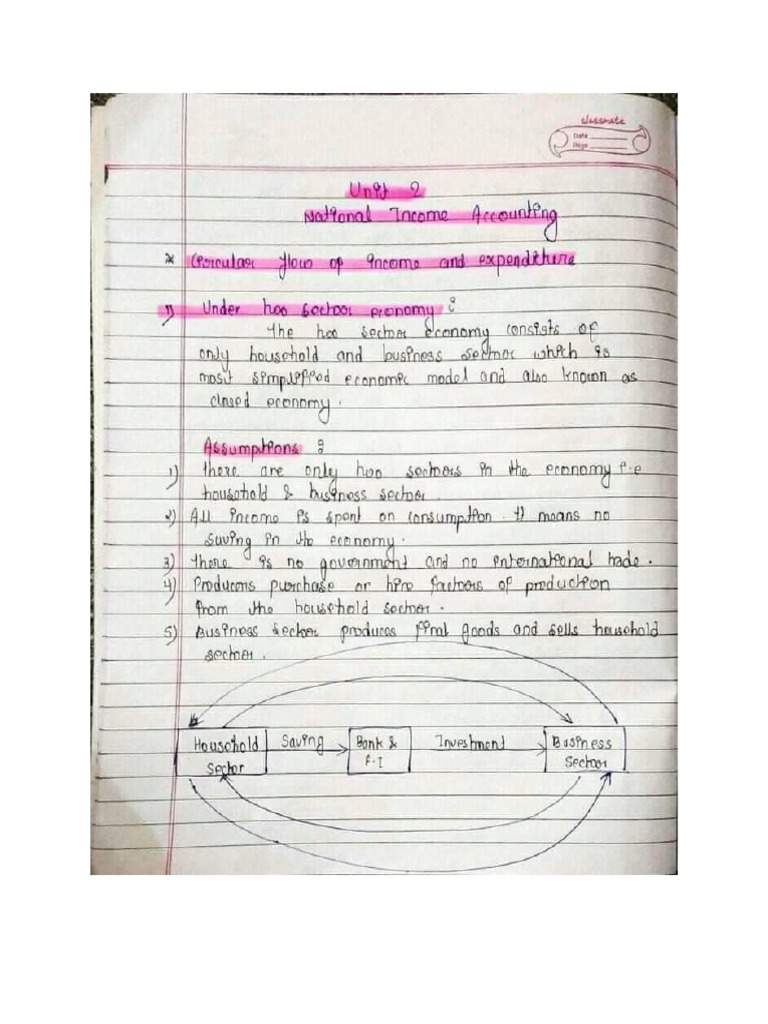 classmate
Date
Page
Unit 2
National Income Accounting
* Circular flow of income and expenditure
1) Under two sector economy :
The two sector economy consists of
only household and business sector which is
most simplified economic model and also known as
closed economy.
Assumptions :
1) There are only two sectors in the economy i.e
household & business sector.
2) All income is spent on consumption. It means no
saving in the economy.
3) There is no government and no international trade.
4) Producers purchase or hire factors of production
from the household sector.
5) Business sector produces final goods and sells household
sector.
Household Saving Bank & Investment Business
Sector F.I Sector